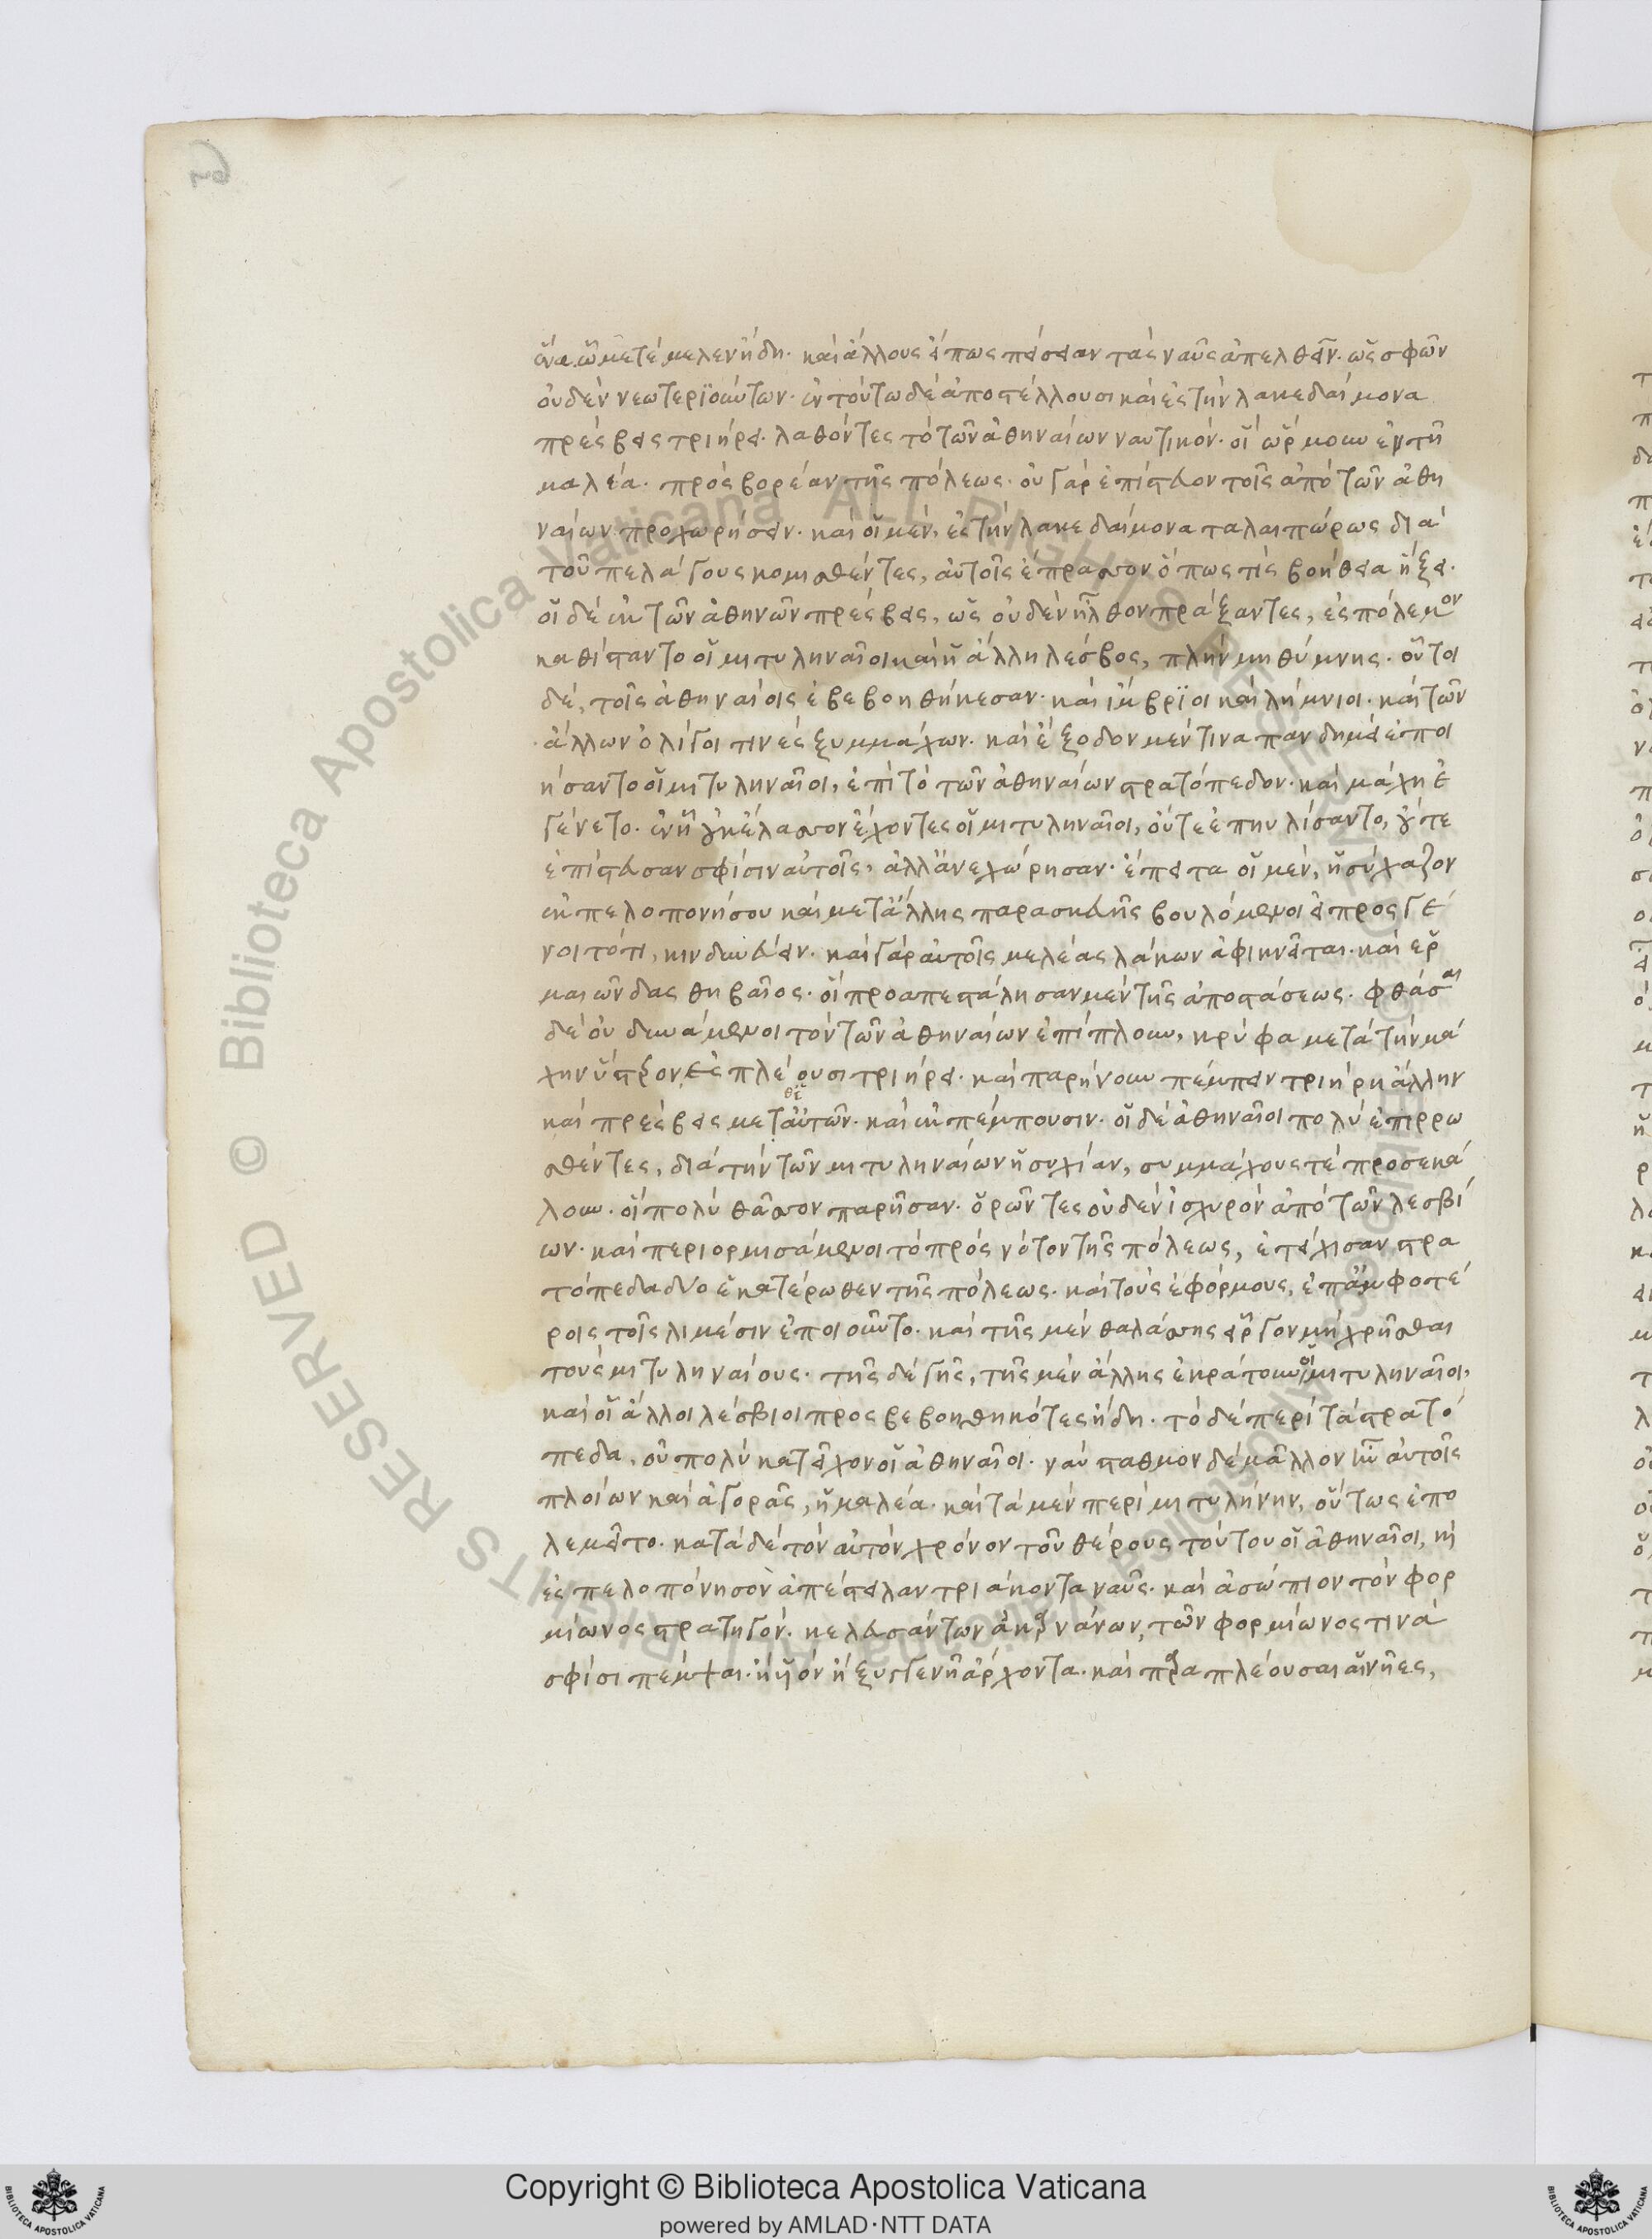 ἕνα ᾧ μετέμελεν ἤδη. καὶ ἄλλους εἴ πως πείσειαν τὰς ναῦς ἀπελθεῖν. ὡς σφῶν
οὐδὲν νεωτεριούντων. ἐν τούτω δὲ ἀποστέλλουσι καὶ ἐς τὴν λακεδαίμονα
πρέσβεις τριήρει. λαθόντες τὸ τῶν ἀθηναίων ναυτικόν. οἳ ὥρμουν ἐν τῆ
μαλέα. πρὸς βορέαν τῆς πόλεως. οὐ γὰρ ἐπίστευον τοῖς ἀπὸ τῶν ἀθη
ναίων προχωρήσειν. καὶ οἱ μὲν, ἐς τὴν λακεδαίμονα ταλαιπώρως διὰ
τοῦ πελάγους κομισθέντες, αὐτοῖς ἔπρασσον ὅπως τὶς βοήθεια ἥξει.
οἱ δὲ ἐκ τῶν ἀθηνῶν πρέσβεις, ὡς οὐδὲν ἦλθον πράξαντες, ἐς πόλεμον
καθίσταντο οἱ μιτυληναῖοι καὶ ἡ ἄλλη λέσβος, πλὴν μηθύμνης. οὗτοι
δὲ, τοῖς ἀθηναίοις ἐβεβοηθήκεσαν. καὶ ἴμβριοι καὶ λήμνιοι. καὶ τῶν
ἄλλων ὀλίγοι τινὲς ξυμμάχων. καὶ ἔξοδον μέν τινα πανδημεὶ ἐποι
ήσαντο οἱ μιτυληναῖοι, ἐπὶ τὸ τῶν ἀθηναίων στρατόπεδον. καὶ μάχη ἐ
γένετο. ἐν ἧ οὐκ ἔλασσον ἔχοντες οἱ μιτυληναῖοι, οὔτε ἐπηυλίσαντο, οὔτε
ἐπίστευσαν σφίσιν αὐτοῖς, ἀλλ' ἀνεχώρησαν. ἔπειτα οἱ μὲν, ἡσύχαζον
ἐκ πελοπονήσου καὶ μετ' ἄλλης παρασκευῆς βουλόμενοι εἰ προςγέ
νοιτό τι, κινδυνεύειν. καὶ γὰρ αὐτοῖς μελέας λάκων ἀφικνεῖται. καὶ ἑρ
μαιώνδας θηβαῖος. οἳ προαπεστάλησαν μὲν τῆς ἀποστάσεως. φθάσαι
δὲ οὐ δυνάμενοι τὸν τῶν ἀθηναίων ἐπίπλουν, κρύφα μετὰ τὴν μά
χην ὕστερον ἐςπλέουσι τριήρει. καὶ παρήνουν πέμπειν τριήρη ἄλλην
καὶ πρέσβεις μετ' αὐτῶν. καὶ ἐκπέμπουσιν. οἱ δὲ ἀθηναῖοι πολὺ ἐπιρρω
σθέντες, διὰ τὴν τῶν μιτυληναίων ἡσυχίαν, συμμάχους τὲ προσεκά
λουν. οἳ πολὺ θᾶσσον παρῆσαν. ὁρῶντες οὐδὲν ἰσχυρὸν ἀπὸ τῶν λεσβί
ων. καὶ περιορμισάμενοι τὸ πρὸς νότον τῆς πόλεως, ἐτείχισαν στρα
τόπεδα δύο ἑκατέρωθεν τῆς πόλεως. καὶ τοὺς ἐφόρμους, ἐπ' ἀμφοτέ
ροις τοῖς λιμέσιν ἐποιοῦντο. καὶ τῆς μὲν θαλάσσης εἶργον μὴ χρῆσθαι
τοὺς μιτυληναίους. τῆς δὲ γῆς, τῆς μὲν ἄλλης ἐκράτουν οἱ μιτυληναῖοι,
καὶ οἱ ἄλλοι λέσβιοι προςβεβοηθηκότες ἤδη. τὸ δὲ περὶ τὰ στρατό
πεδα, οὐ πολὺ κατεῖχον οἱ ἀθηναῖοι. ναύσταθμον δὲ μᾶλλον ἦν αὐτοῖς
πλοίων καὶ ἀγορᾶς, ἡ μαλέα. καὶ τὰ μὲν περὶ μιτυλήνην, οὕτως ἐπο
λεμεῖτο. κατὰ δὲ τὸν αὐτὸν χρόνον τοῦ θέρους τούτου οἱ ἀθηναῖοι, καὶ
ἐς πελοπόνησον ἀπέστειλαν τριάκοντα ναῦς. καὶ ἀσώπιον τὸν φορ
μίωνος στρατηγόν. κελευσάντων ἀκαρνάνων, τῶν φορμίωνος τινὰ
σφίσι πέμψαι. ἢ υἱὸν ἢ ξυγγενῆ ἄρχοντα. καὶ παραπλέουσαι αἱ νῆες,
Copyright © Biblioteca Apostolica Vaticana
powered by AMLAD·NTT DATA